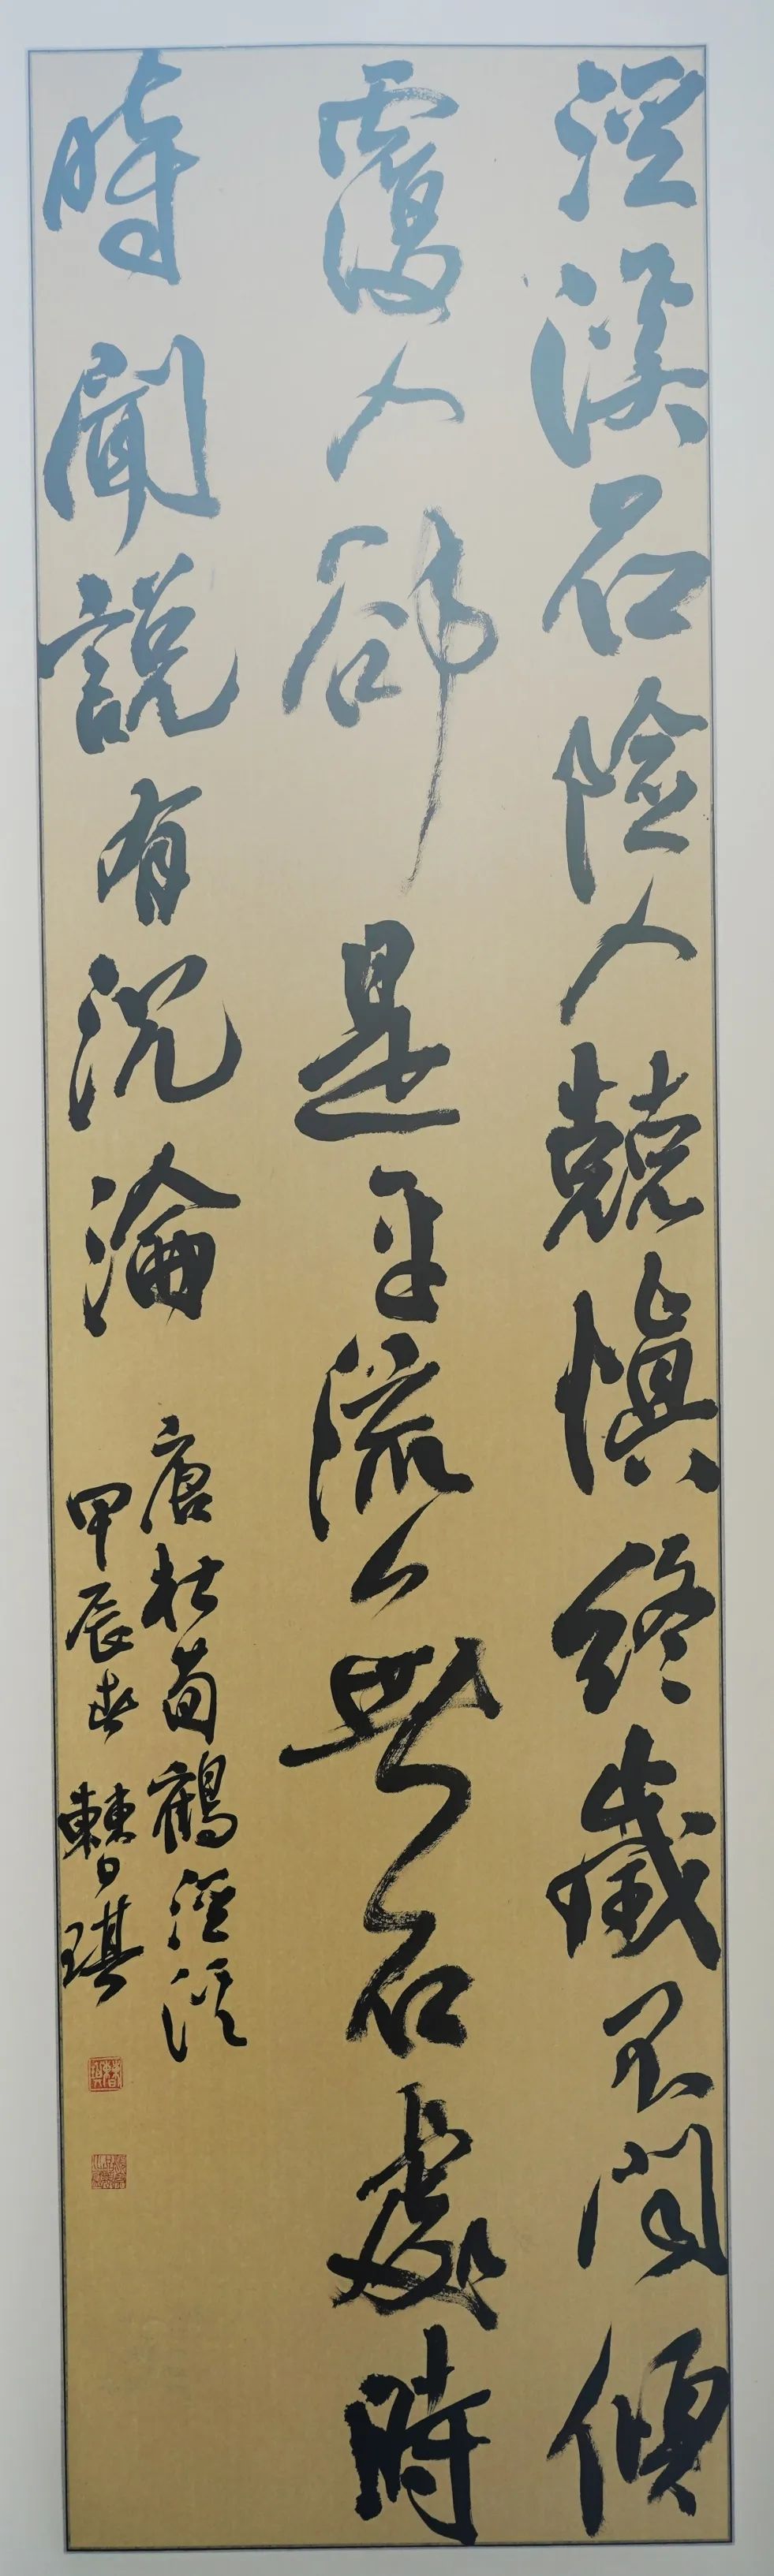 涇溪石險人兢慎終歲不聞傾
覆人卻是平流無石處時
時聞說有沉淪
唐杜荀鶴涇溪
甲辰春 琪